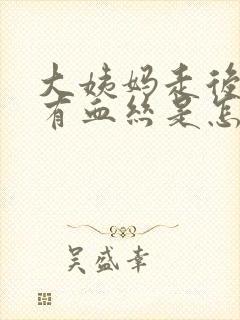 大姨妈走後
有血丝是怎
吴盛幸